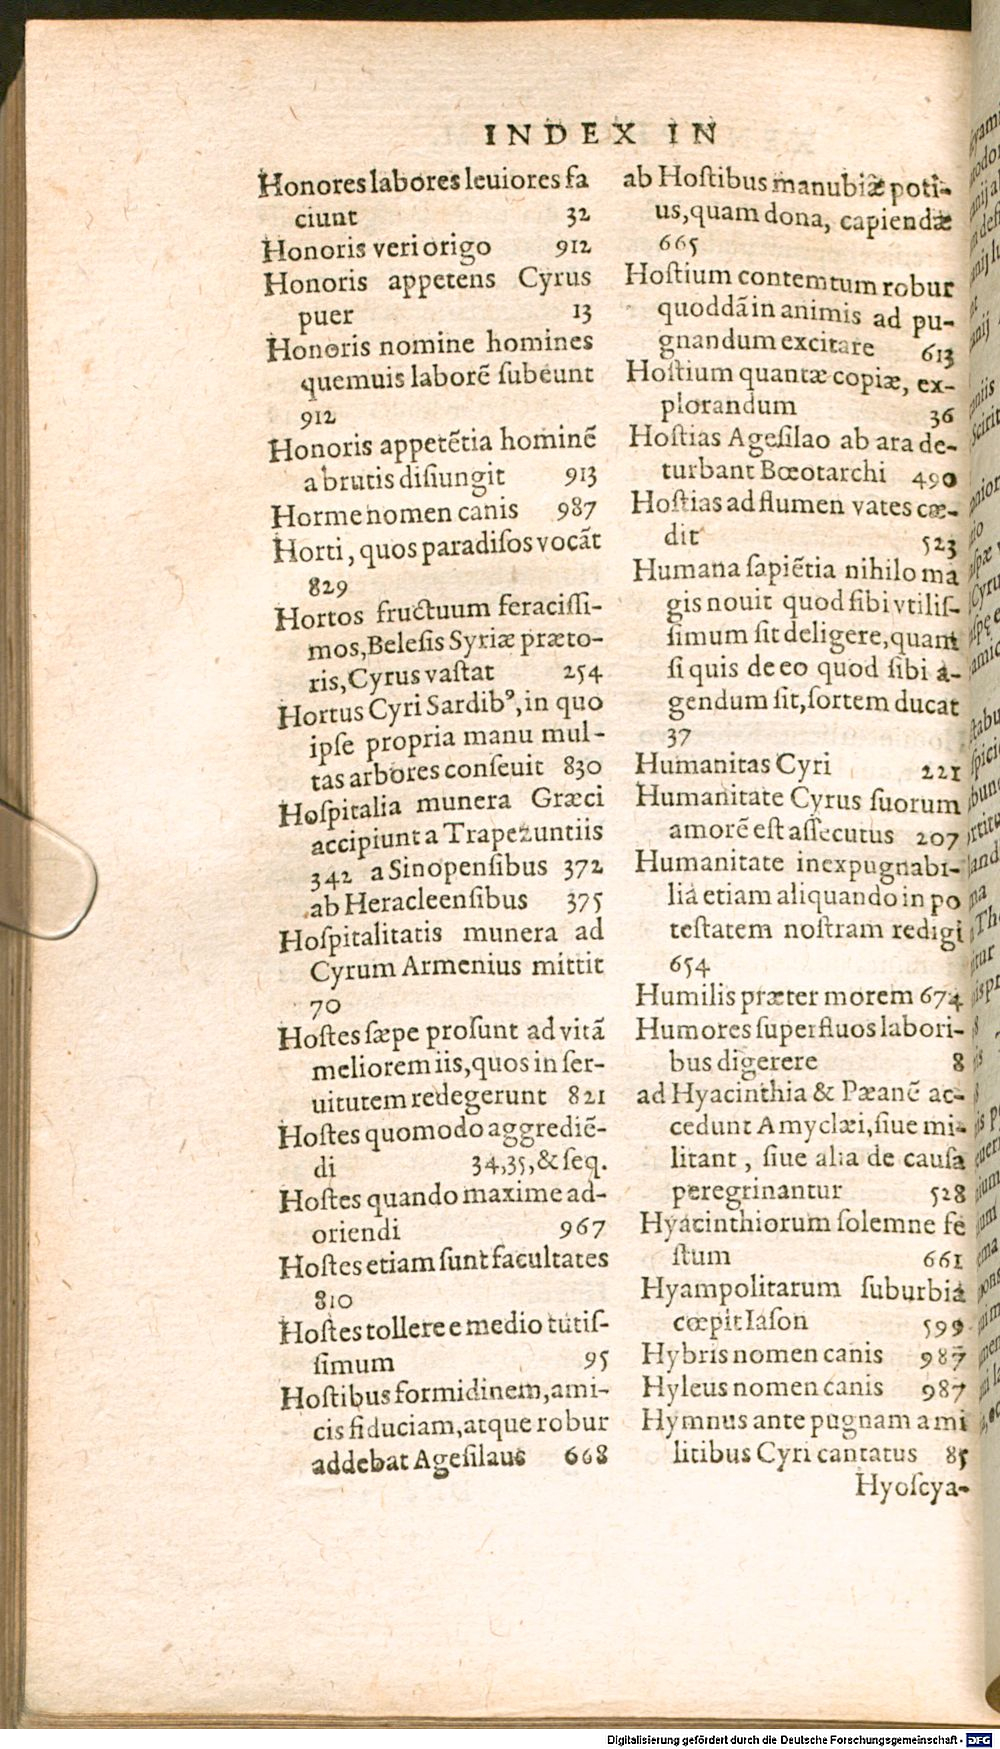 INDEX IN
Honores labores leuiores fa
ciunt 32
Honoris veri origo 912
Honoris appetens Cyrus
puer 13
Honoris nomine homines
quemuis laborẽ subeunt
912
Honoris appetẽtia hominẽ
a brutis disiungit 913
Horme nomen canis 987
Horti, quos paradisos vocãt
829
Hortos fructuum feracissi-
mos, Belesis Syriæ præto-
ris, Cyrus vastat 254
Hortus Cyri Sardibꝰ, in quo
ipse propria manu mul-
tas arbores conseuit 830
Hospitalia munera Græci
accipiunt a Trapezuntiis
342 a Sinopensibus 372
ab Heracleensibus 375
Hospitalitatis munera ad
Cyrum Armenius mittit
70
Hostes sæpe prosunt ad vitã
meliorem iis, quos in ser-
uitutem redegerunt 821
Hostes quomodo aggrediẽ-
di 34, 35, & seq.
Hostes quando maxime ad-
oriendi 967
Hostes etiam sunt facultates
810
Hostes tollere e medio tutis-
simum 95
Hostibus formidinem, ami-
cis fiduciam, atque robur
addebat Agesilaus 668
ab Hostibus manubiæ poti-
us, quam dona, capiendæ
665
Hostium contemtum robur
quoddã in animis ad pu-
gnandum excitare 613
Hostium quantæ copiæ, ex-
plorandum 36
Hostias Agesilao ab ara de-
turbant Bœotarchi 490
Hostias ad flumen vates cæ-
dit 523
Humana sapiẽtia nihilo ma
gis nouit quod sibi vtilis-
simum sit deligere, quam
si quis de eo quod sibi a-
gendum sit, sortem ducat
37
Humanitas Cyri 221
Humanitate Cyrus suorum
amorẽ est assecutus 207
Humanitate inexpugnabi-
lia etiam aliquando in po
testatem nostram redigi
654
Humilis præter morem 674
Humores superfluos labori-
bus digerere 8
ad Hyacinthia & Pæanẽ ac-
cedunt Amyclæi, siue mi-
litant, siue alia de causa
peregrinantur 528
Hyacinthiorum solemne fe
stum 661
Hyampolitarum suburbia
cœpit Iason 599
Hybris nomen canis 987
Hyleus nomen canis 987
Hymnus ante pugnam a mi
litibus Cyri cantatus 85
Hyoscya-
Digitalisierung gefördert durch die Deutsche Forschungsgemeinschaft - DFG